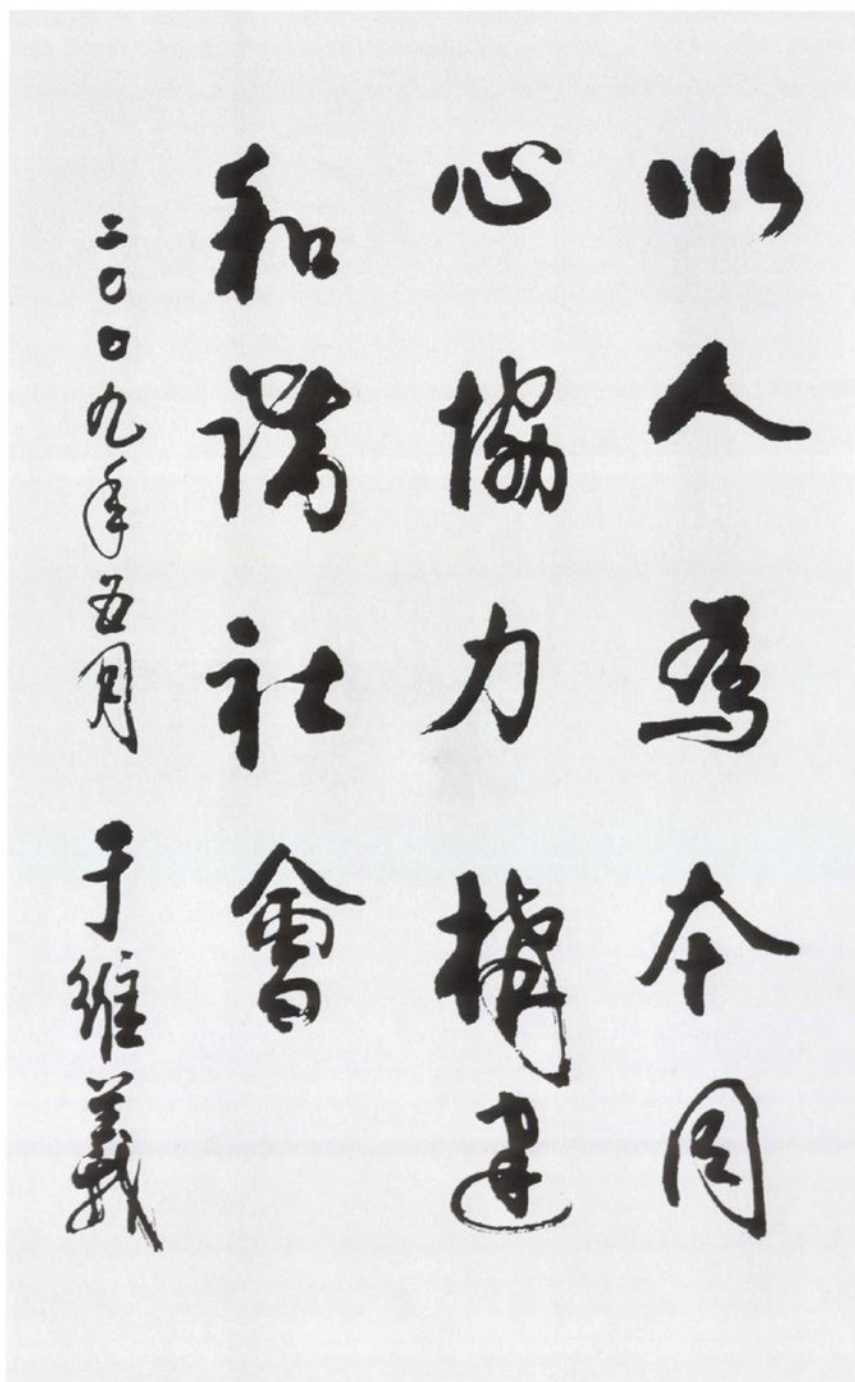 以人為本同
心協力構建
和谐社會
二〇〇九年五月 于維義